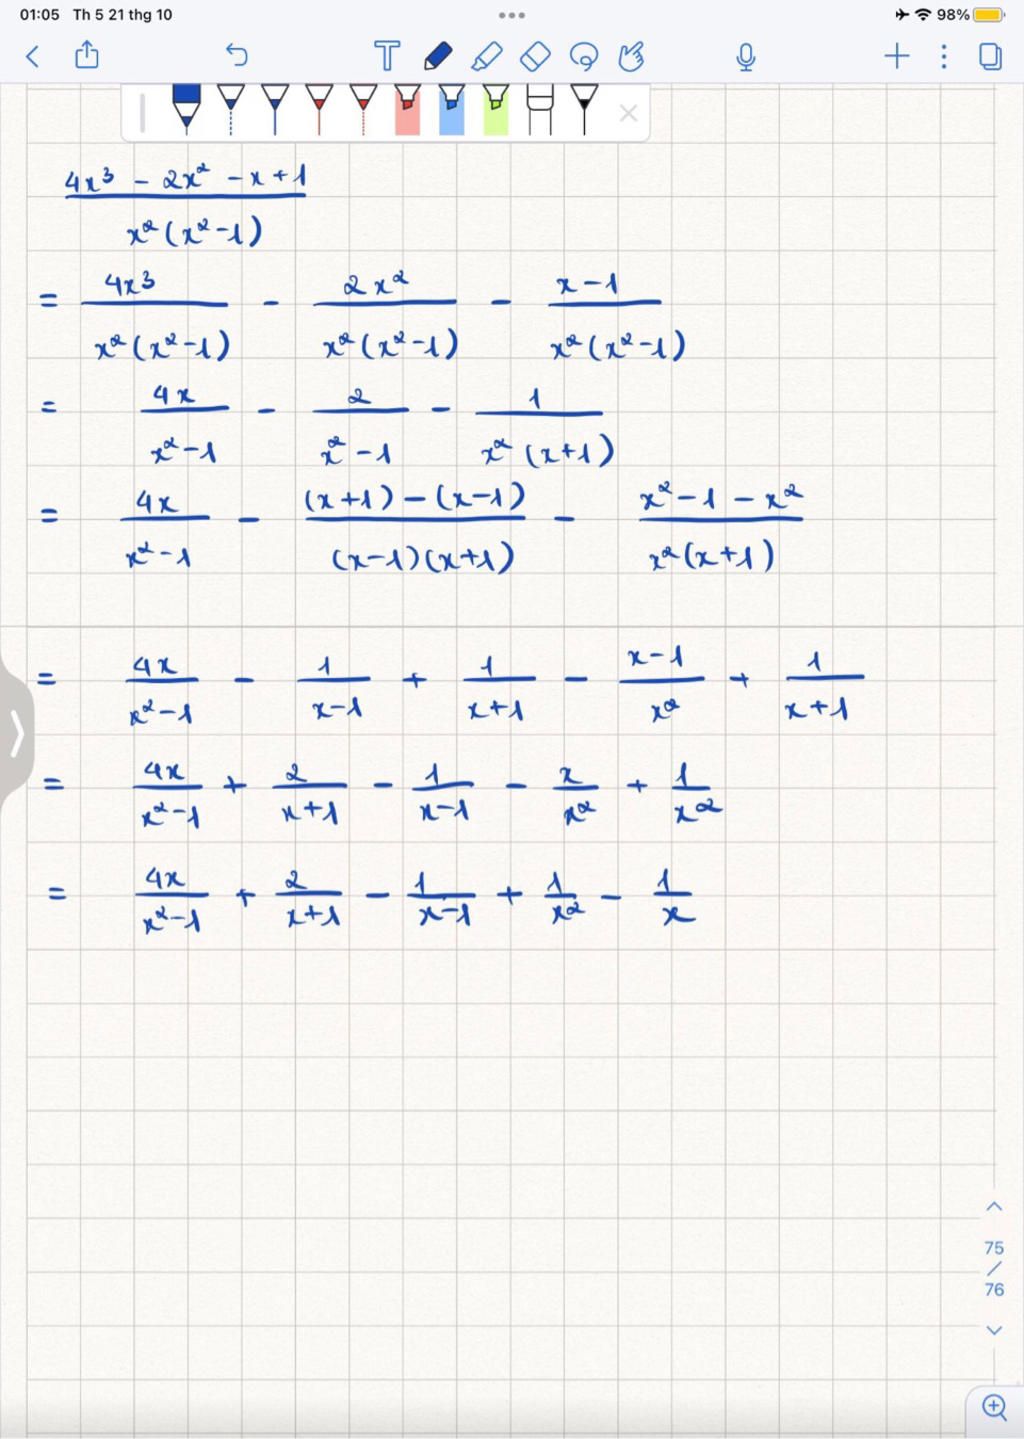 01:05 Th 5 21 thg 10 98%
4x³ - 2x² - x + 1 / x²(x² - 1)
= 4x³ / x²(x² - 1) - 2x² / x²(x² - 1) - x - 1 / x²(x² - 1)
= 4x / x² - 1 - 2 / x² - 1 - 1 / x²(x + 1)
= 4x / x² - 1 - (x + 1) - (x - 1) / (x - 1)(x + 1) - x² - 1 - x² / x²(x + 1)
= 4x / x² - 1 - 1 / x - 1 + 1 / x + 1 - x - 1 / x² + 1 / x + 1
= 4x / x² - 1 + 2 / x + 1 - 1 / x - 1 - x / x² + 1 / x²
= 4x / x² - 1 + 2 / x + 1 - 1 / x - 1 + 1 / x² - 1 / x
75
/
76